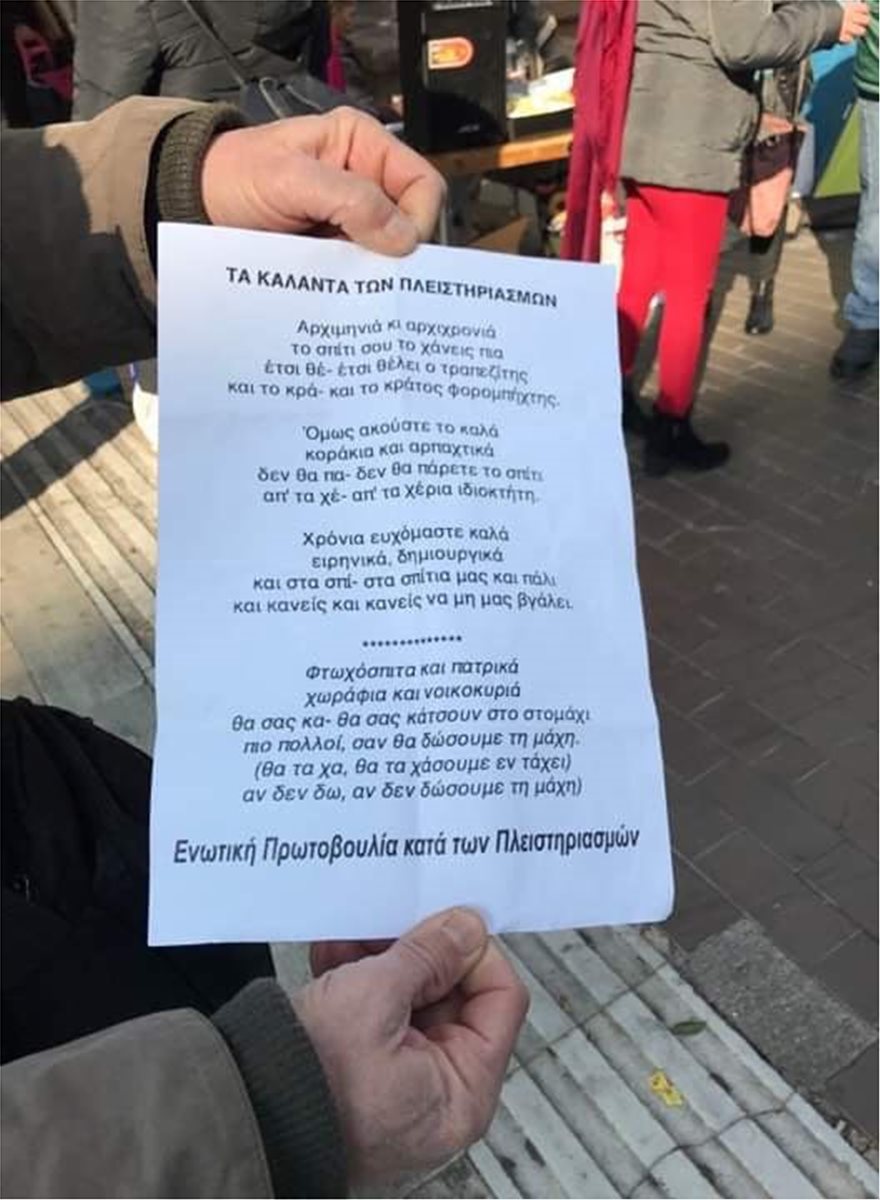 ΤΑ ΚΑΛΑΝΤΑ ΤΩΝ ΠΛΕΙΣΤΗΡΙΑΣΜΩΝ
Αρχιμηνιά κι αρχιχρονιά
το σπίτι σου το χάνεις πια
έτσι θέ- έτσι θέλει ο τραπεζίτης
και το κρά- και το κράτος φορομπήχτης.
Όμως ακούστε το καλά
κοράκια και αρπαχτικά
δεν θα πα- δεν θα πάρετε το σπίτι
απ' τα χέ- απ' τα χέρια ιδιοκτήτη.
Χρόνια ευχόμαστε καλά
ειρηνικά, δημιουργικά
και στα σπί- στα σπίτια μας και πάλι
και κανείς και κανείς να μη μας βγάλει.
**************
Φτωχόσπιτα και πατρικά
χωράφια και νοικοκυριά
θα σας κα- θα σας κάτσουν στο στομάχι
πιο πολλοί, σαν θα δώσουμε τη μάχη.
(θα τα χα, θα τα χάσουμε εν τάχει)
αν δεν δω, αν δεν δώσουμε τη μάχη)
Ενωτική Πρωτοβουλία κατά των Πλειστηριασμών